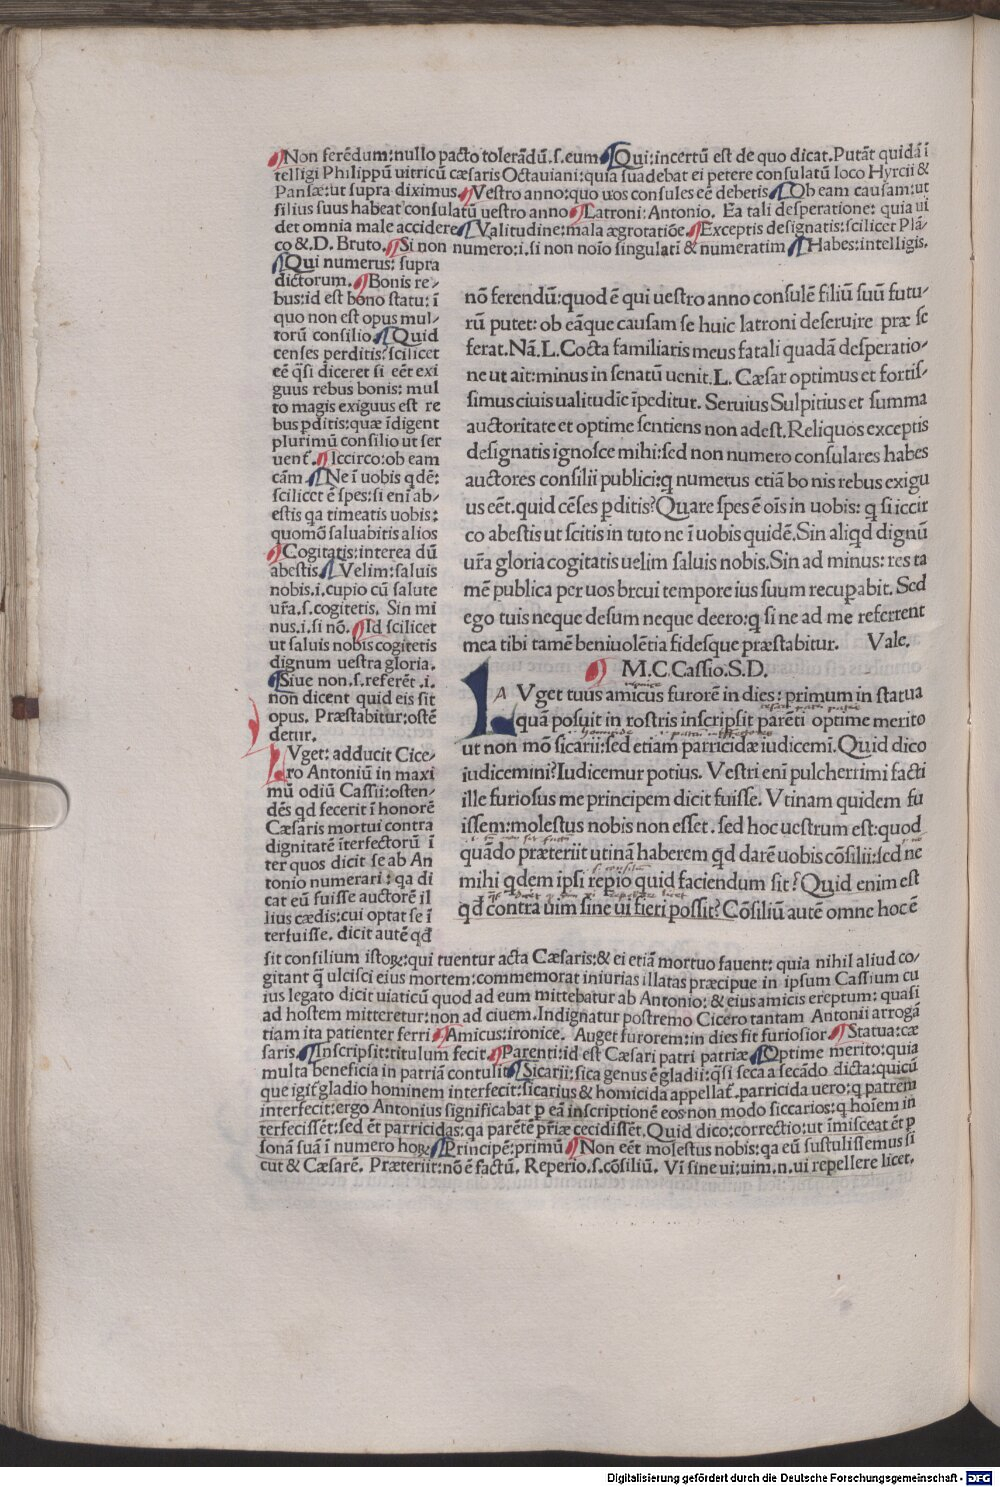 Non ferēdum:nullo pacto tolerādū.ſ.eum Qui:incertū est de quo dicat.Putāt quidā ī
telligi Philippū uitricū cæſaris Octauiani:quia ſuadebat ei petere conſulatū loco Hyrcii &
Panſæ:ut ſupra diximus. Vestro anno:quo uos conſules eē debetis. Ob eam cauſam:ut
filius ſuus habeat conſulatū uestro anno Latroni:Antonio. Ea tali deſperatione: quia ui
det omnia male accidere Valitudine:mala ægrotatiōe. Exceptis deſignatis:ſcilicet Plā-
co &.D. Bruto. Si non numero:i.ſi non noīo ſingulatī & numeratim Habes:intelligis.
Qui numerus: ſupra
dictorum. Bonis re-
bus:id est bono statu: ī
quo non est opus mul-
torū conſilio Quid
cenſes perditis:ſcilicet
eē q̄ſi diceret ſi eēt exi
guus rebus bonis: mul
to magis exiguus est re
bus pditis:quæ īdigent
plurimū conſilio ut ſer
uent̄. Iccirco:ob eam
cām. Ne ī uobis qdē:
ſcilicet ē ſpes:ſi enī ab-
estis qa timeatis uobis:
quomō ſaluabitis alios
Cogitatis:interea dū
abestis. Velim:ſaluis
nobis.i.cupio cū ſalute
ur̄a.ſ.cogitetis. Sin mi
nus.i.ſi nō. Id ſcilicet
ut ſaluis nobis cogitetis
dignum uestra gloria.
Siue non.ſ.referēt .i.
non dicent quid eis ſit
opus. Præstabitur:ostē
detur.
Vget: adducit Cice-
ro Antoniū in maxi
mū odiū Caſſii:osten-
dēs qd fecerit ī honorē
Cæſaris mortui contra
dignitatē īterfectorū ī
ter quos dicit ſe ab An
tonio numerari: qa di
cat eū fuiſſe auctorē il
lius cædis:cui optat ſe ī
terfuiſſe. dicit autē qd
nō ferendū:quod ē qui uestro anno conſulē filiū ſuū futu-
rū putet: ob eāque cauſam ſe huic latroni deſeruire præ ſe
ferat.Nā.L.Cocta familiaris meus fatali quadā deſperatio-
ne ut ait:minus in ſenatū uenit.L. Cæſar optimus et fortiſ-
ſimus ciuis ualitudīe īpeditur. Seruius Sulpitius et ſumma
auctoritate et optime ſentiens non adest.Reliquos exceptis
deſignatis ignoſce mihi:ſed non numero conſulares habes
auctores conſilii publici:q numetus etiā bo nis rebus exigu
us eēt.quid cēſes pditis?Quare ſpes ē oīs in uobis: q ſi iccir
co abestis ut ſcitis in tuto ne ī uobis quidē.Sin aliqd dignū
ur̄a gloria cogitatis uelim ſaluis nobis.Sin ad minus: res ta
mē publica per uos breui tempore ius ſuum recupabit. Sed
ego tuis neque deſum neque deero:q ſi ne ad me referrent
mea tibi tamē beniuolētia fideſque præstabitur. Vale.
M.C.Caſſio.S.D.
LA Vget tuus amicus furorē in dies: primum in statua
quā poſuit in rostris inſcripſit parēti optime merito
ut non mō ſicarii:ſed etiam parricidæ iudicemī.Quid dico
iudicemini?Iudicemur potius. Vestri enī pulcherrimi facti
ille furioſus me principem dicit fuiſſe. Vtinam quidem fu
iſſem:molestus nobis non eſſet. ſed hoc uestrum est:quod
quādo præteriit utinā haberem qd darē uobis cōſilii:ſed ne
mihi qdem ipſi repio quid faciendum ſit? Quid enim est
qd contra uim ſine ui fieri poſſit? Cōſiliū autē omne hoc ē
ſit conſilium istoꝝ:qui tuentur acta Cæſaris:& ei etiā mortuo fauent: quia nihil aliud co-
gitant q̄ ulciſci eius mortem:commemorat iniurias illatas præcipue in ipſum Caſſium cu
ius legato dicit uiaticū quod ad eum mittebatur ab Antonio: & eius amicis ereptum: quaſi
ad hostem mitteretur:non ad ciuem. Indignatur postremo Cicero tantam Antonii arrogā
tiam ita patienter ferri Amicus:ironice. Auget furorem:in dies fit furioſior Statua:cæ
ſaris. Inſcripſit:titulum fecit. Parenti:id est Cæſari patri patriæ Optime merito:quia
multa beneficia in patriā contulit Sicarii:ſica genus ē gladii:q̄ſi ſeca a ſecādo dicta:quicū
que igit̄ gladio hominem interfecit:ſicarius & homicida appellat̄.parricida uero:q patrem
interfecit:ergo Antonius ſignificabat p eā inſcriptionē eos non modo ſiccarios:q hoīem in
terfeciſſēt:ſed ēt parricidas:qa parētē pr̄iæ cecidiſſēt.Quid dico:correctio:ut īmiſceat ēt p
ſonā ſuā ī numero hoꝝ Principē:primū Non eēt molestus nobis:qa eū ſustuliſſemus ſi
cut & Cæſarē. Præteriit:nō ē factū. Reperio.ſ.cōſiliū. Vī ſine ui:uim.n.ui repellere licet.
Digitalisierung gefördert durch die Deutsche Forschungsgemeinschaft - DFG